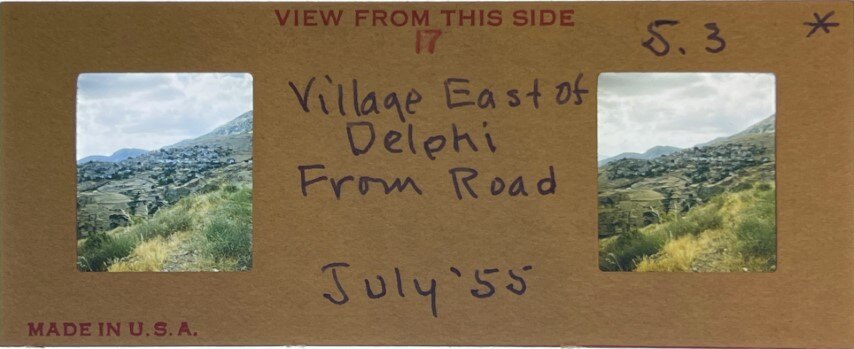 VIEW FROM THIS SIDE
17
5.3 *
Village East of
Delphi
From Road
July '55
MADE IN U.S.A.